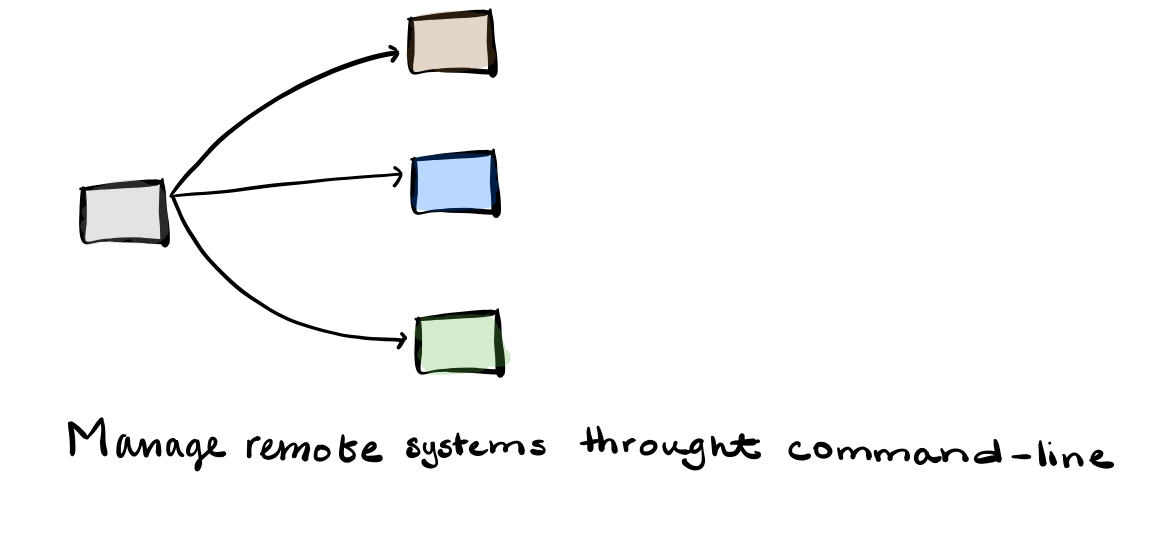 Manage remote systems throught command-line